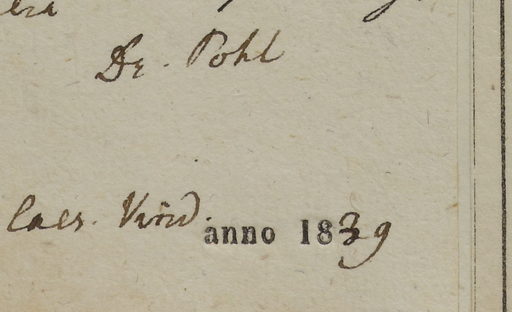 Dr. Pohl
Caes. Vind. anno 1839